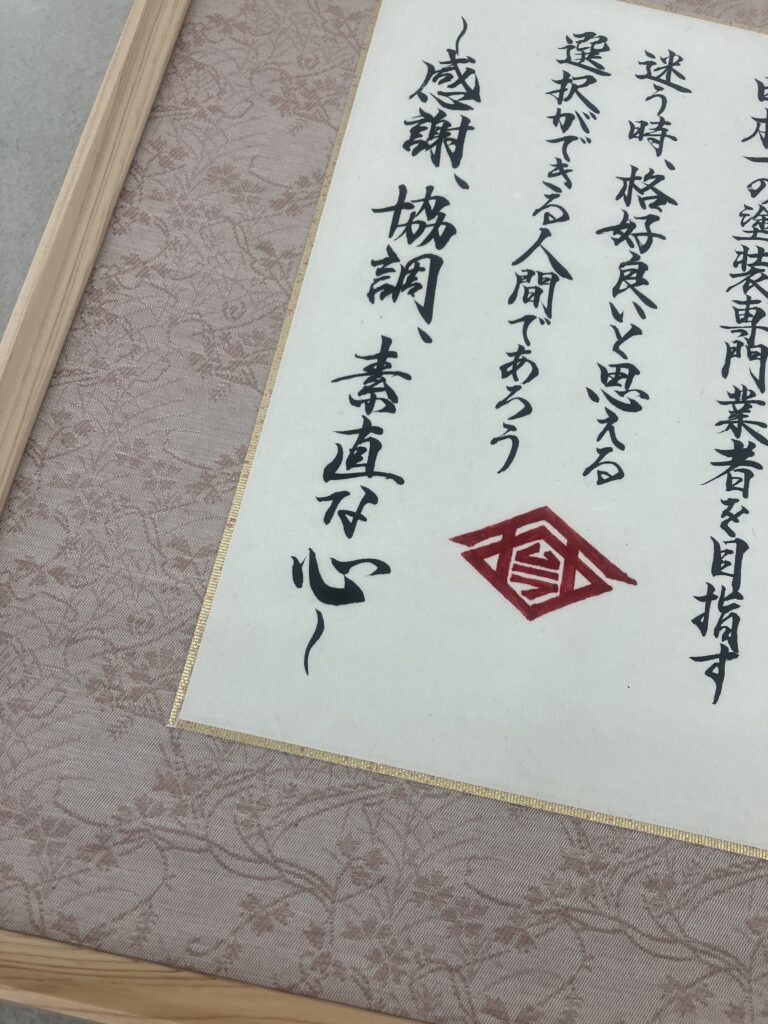 日本一の塗装専門業者を目指す
迷う時、格好良いと思える
選択ができる人間であろう
~感謝、協調、素直な心~